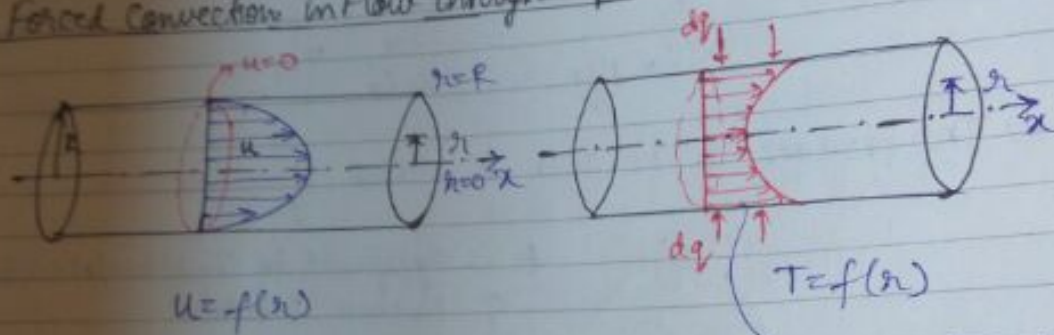 Forced Convection in Flow through
u=0
r=R
R
u
r
r=0 x
u=f(r)
dq
r
x
dq
T=f(r)